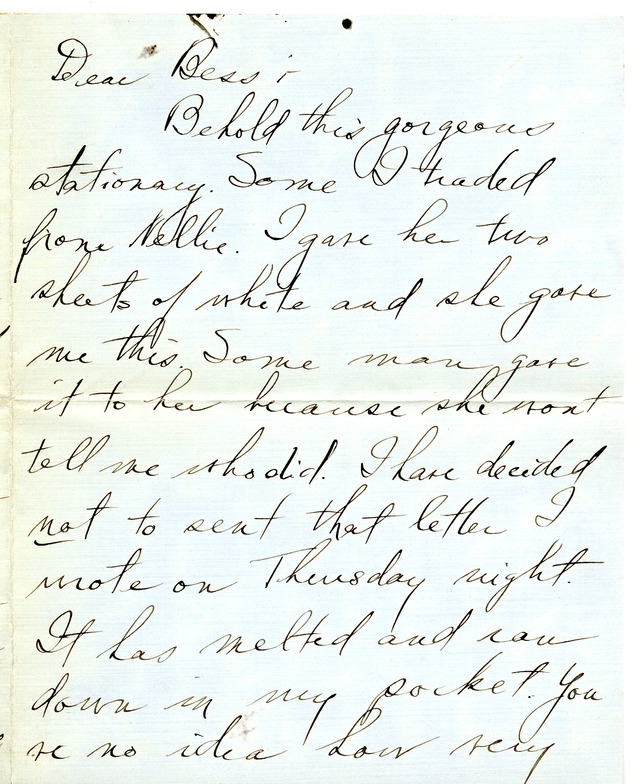 Dear Bess:
Behold this gorgeous
stationary. Some I traded
from Nellie. I gave her two
sheets of white and she gave
me this. Some man gave
it to her because she wont
tell me who did. I have decided
not to sent that letter I
wrote on Thursday night.
It has melted and ran
down in my pocket. You
ve no idea how very